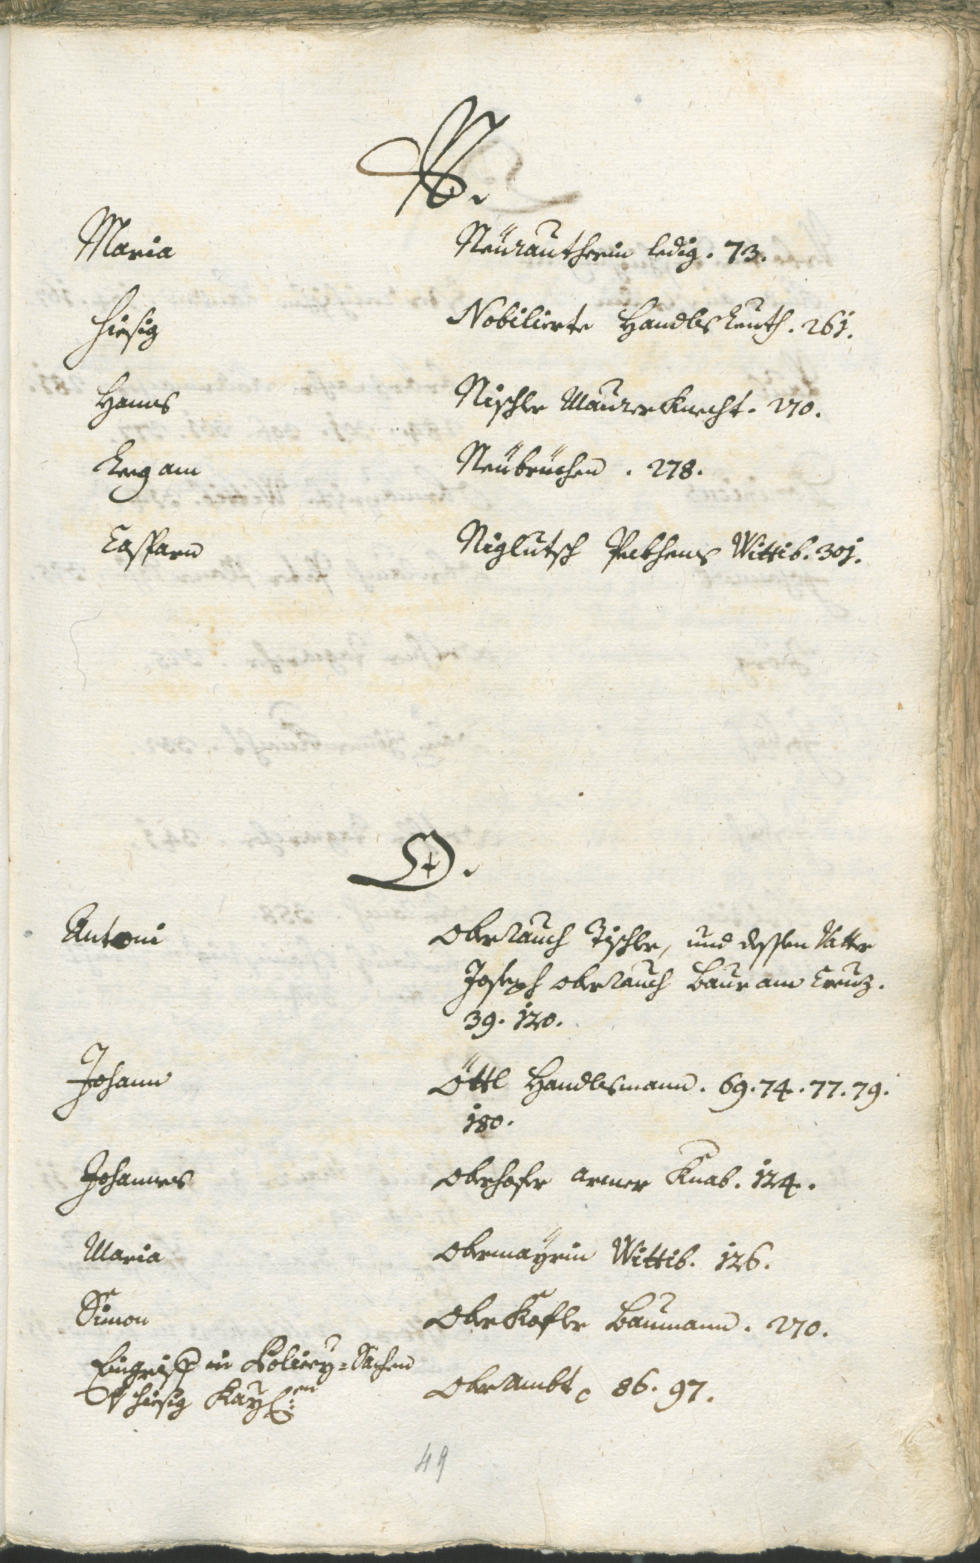 N.
Maria Neurautherin ledig. 73.
hiesig Nobilierte Handls Leuth. 261.
Hanns Nischler Maurer Knecht. 270.
Leegam Neübrüchen. 278.
Casparn Niglutsch Pekhens Wittib. 301.
O.
Antoni Oberrauch Tischler, und dessen Vatter
Joseph Oberrauch Baur am Creuz.
39. 120.
Johann Öttl Handlsmann. 69. 74. 77. 79.
180.
Johannes Oberhofer armer Knab. 124.
Maria Obermayrin Wittib. 126.
Simon Oberkofler Baumann. 270.
Eingriff in Policey-Sachen
hiesig Kayl: en Oberambt. 86. 97.
49